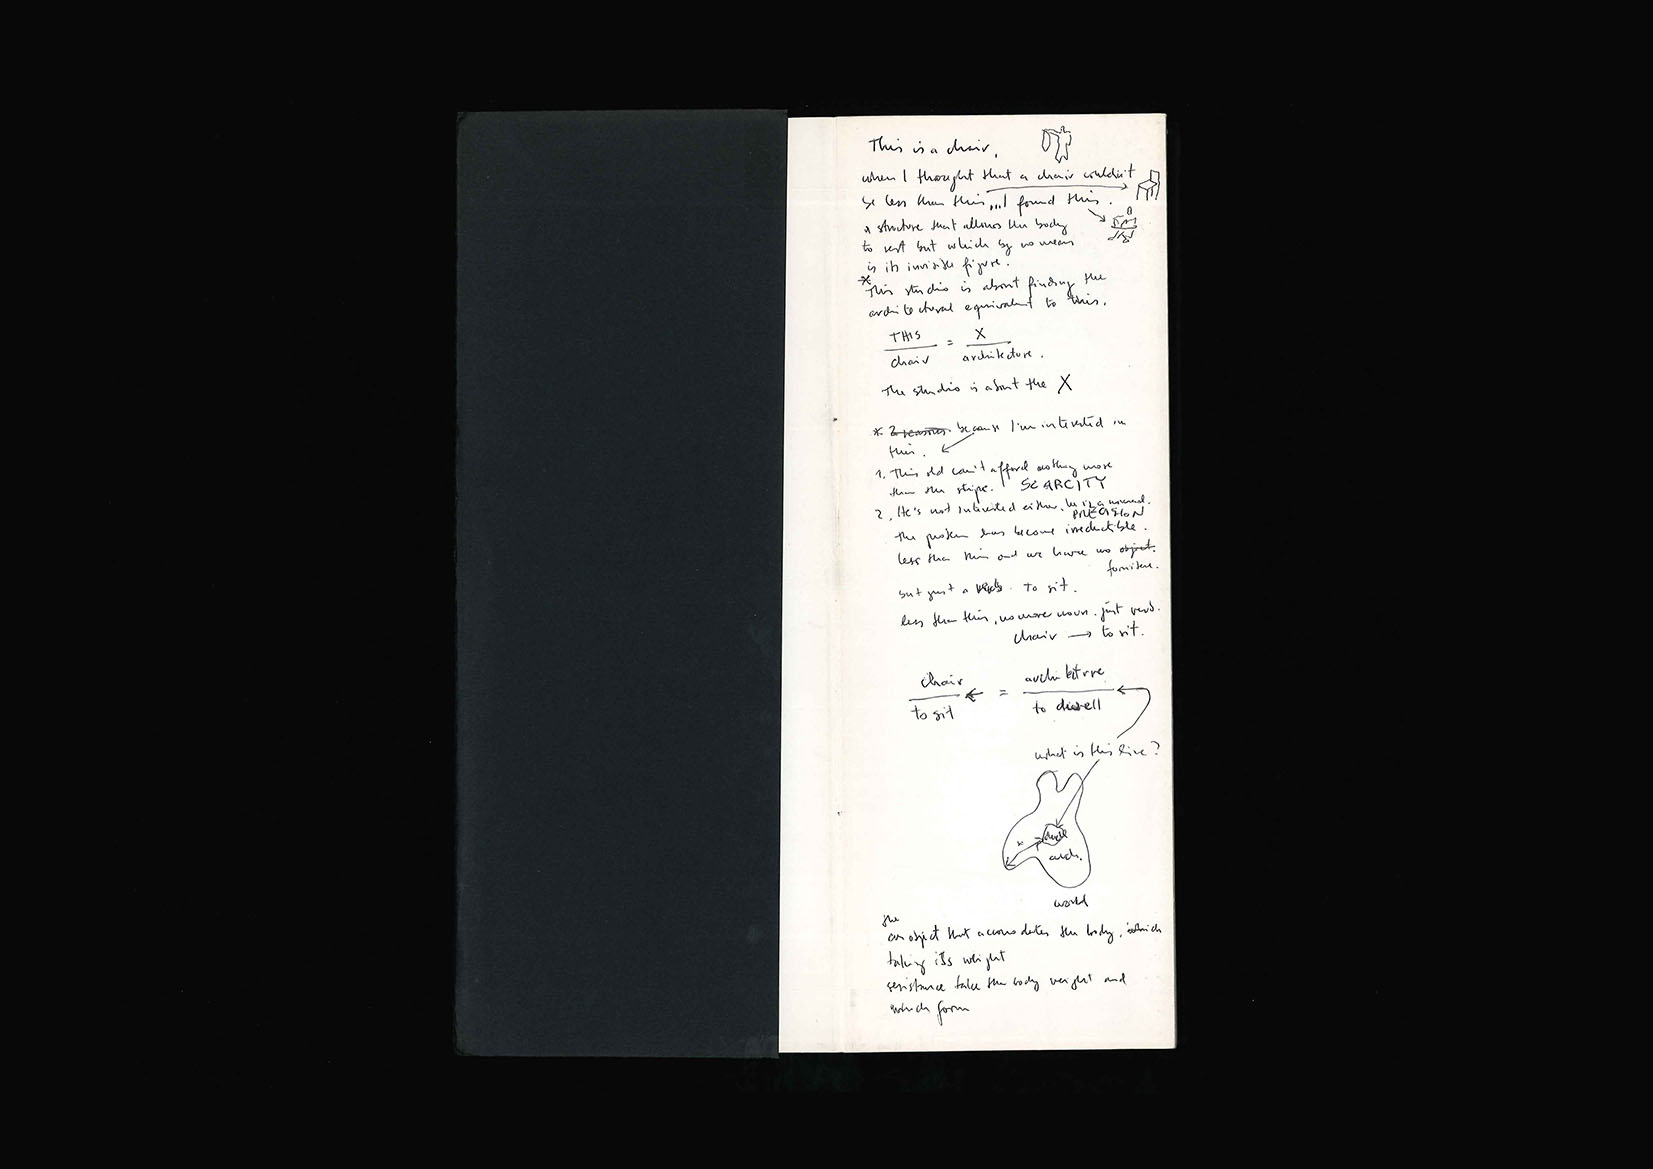 This is a chair.
when I thought that a chair couldn't
be less than this...I found this.
a structure that allows the body
to rest but which by no mean
is its invisible figure.
* This studio is about finding the
architectural equivalent to this.
THIS / chair = X / architecture.
The studio is about the X
* 2 reasons. because I'm interested in
this.
1. This old can't afford nothing more
than the stripe. SCARCITY
2. He's not interested either. he is a nomad.
PRECISION
the problem has become irreductible.
less than this and we have no object.
forniture.
but just a verb. to sit.
less than this, no more noun. just verb.
chair → to sit.
chair / to sit = architecture / to dwell
what is this line?
x dwell
arch.
world
the
an object that accomodates the body, which
taking its weight
resistance take the body weight and
which form